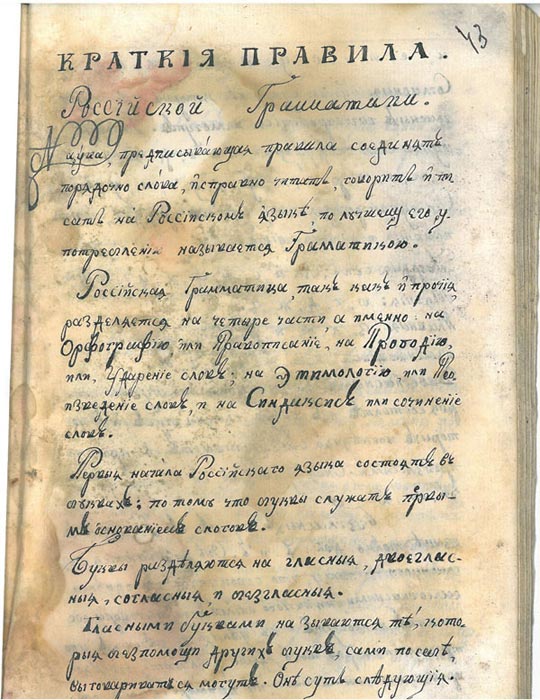 43
КРАТКІЯ ПРАВИЛА.
Россійской Грамматики.
Наука, предписывающая правила соединять
порядочно слова, исправно читать, говорить и пи
сать на Россійскомъ языкѣ, по лучшему его у
потребленію называется Грамматикою.
Россійская Грамматика, такъ какъ и прочія,
раздѣляется на четыре части, а именно: на
Орфографію или Правописаніе, на Просодію,
или, Удареніе словъ; на Этимологію, или Про
изведеніе словъ, и на Синдаксисъ или сочиненіе
словъ.
Первыя начала Россійскаго языка состоятъ въ
буквахъ: по тому что буквы служатъ первы-
мъ основаніемъ слоговъ.
Буквы раздѣляются на гласныя, двоеглас-
ныя, согласныя и безгласныя.
Гласными буквами называются тѣ, кото
рыя безпомощи другихъ буквъ, сами по себѣ,
выговариваться могутъ. Онѣ суть слѣдующія.